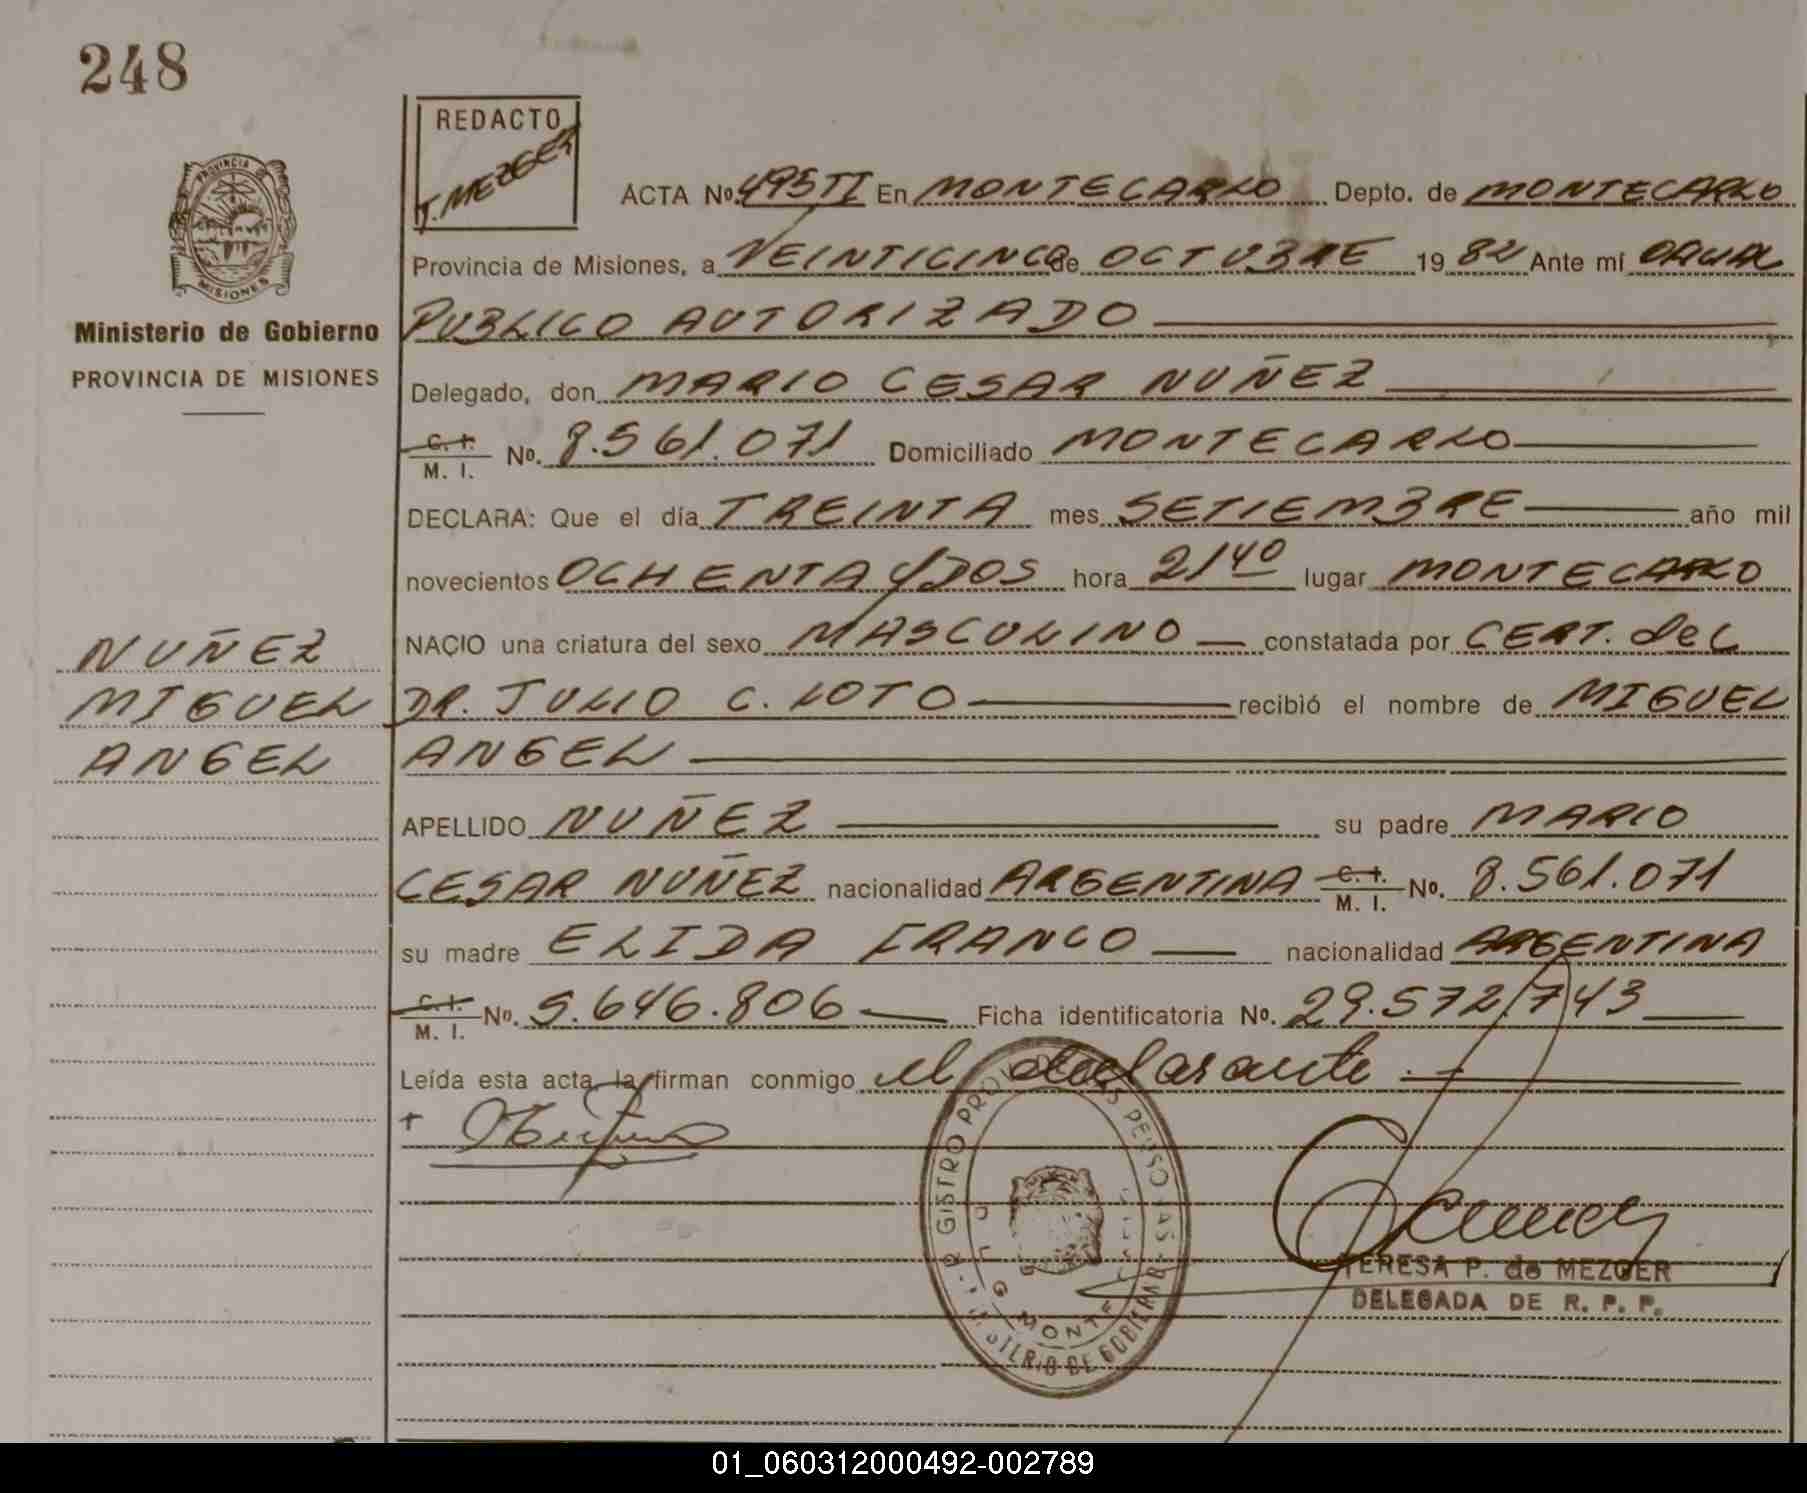 248
REDACTO
T. MEZGER
PROVINCIA
MISIONES
Ministerio de Gobierno
PROVINCIA DE MISIONES
ACTA No. 495 TI En MONTECARLO Depto. de MONTECARLO
Provincia de Misiones, a VEINTICINCO de OCTUBRE 1982 Ante mí
PUBLICO AUTORIZADO
Delegado, don MARIO CESAR NUÑEZ
C. I. M. I. No. 8.561.071 Domiciliado MONTECARLO
DECLARA: Que el día TREINTA mes SETIEMBRE año mil
novecientos OCHENTA y DOS hora 21 40 lugar MONTECARLO
NACIO una criatura del sexo MASCULINO constatada por CERT. del
DR. JULIO C. LOTO recibió el nombre de MIGUEL
ANGEL
NUÑEZ
MIGUEL
ANGEL
APELLIDO NUÑEZ su padre MARIO
CESAR NUÑEZ nacionalidad ARGENTINA C. I. M. I. No. 8.561.071
su madre ELIDA FRANCO nacionalidad ARGENTINA
C. I. M. I. No. 5.646.806 Ficha identificatoria No. 29.572.743
Leída esta acta, la firman conmigo el declarante
TERESA P. de MEZGER
DELEGADA DE R. P. P.
01_060312000492-002789